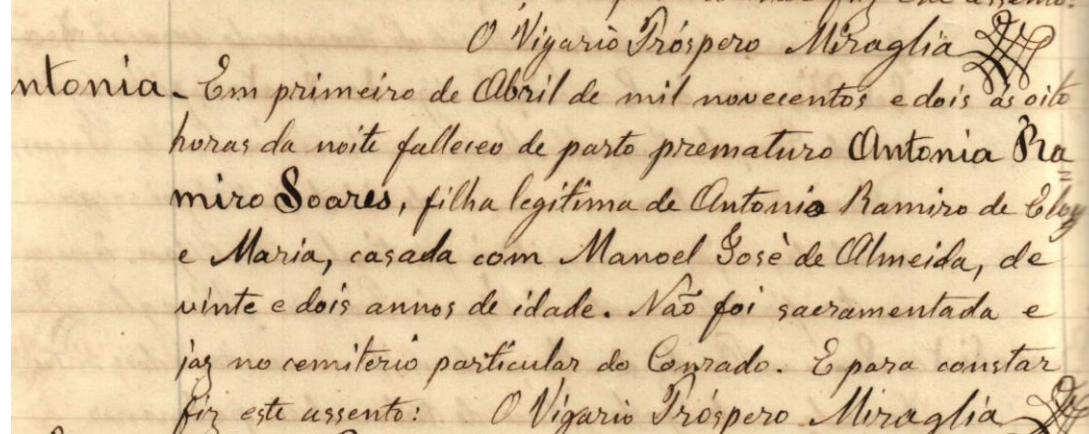 O Vigario Próspero Miraglia
ntonia - Em primeiro de Abril de mil novecentos e dois ás oito
horas da noite falleceo de parto prematuro Antonia Ra
miro Soares, filha legitima de Antonio Ramiro de Eloy
e Maria, casada com Manoel Josè de Almeida, de
vinte e dois annos de idade. Não foi sacramentada e
jaz no cemiterio particular do Conrado. E para constar
fiz este assento: O Vigario Próspero Miraglia